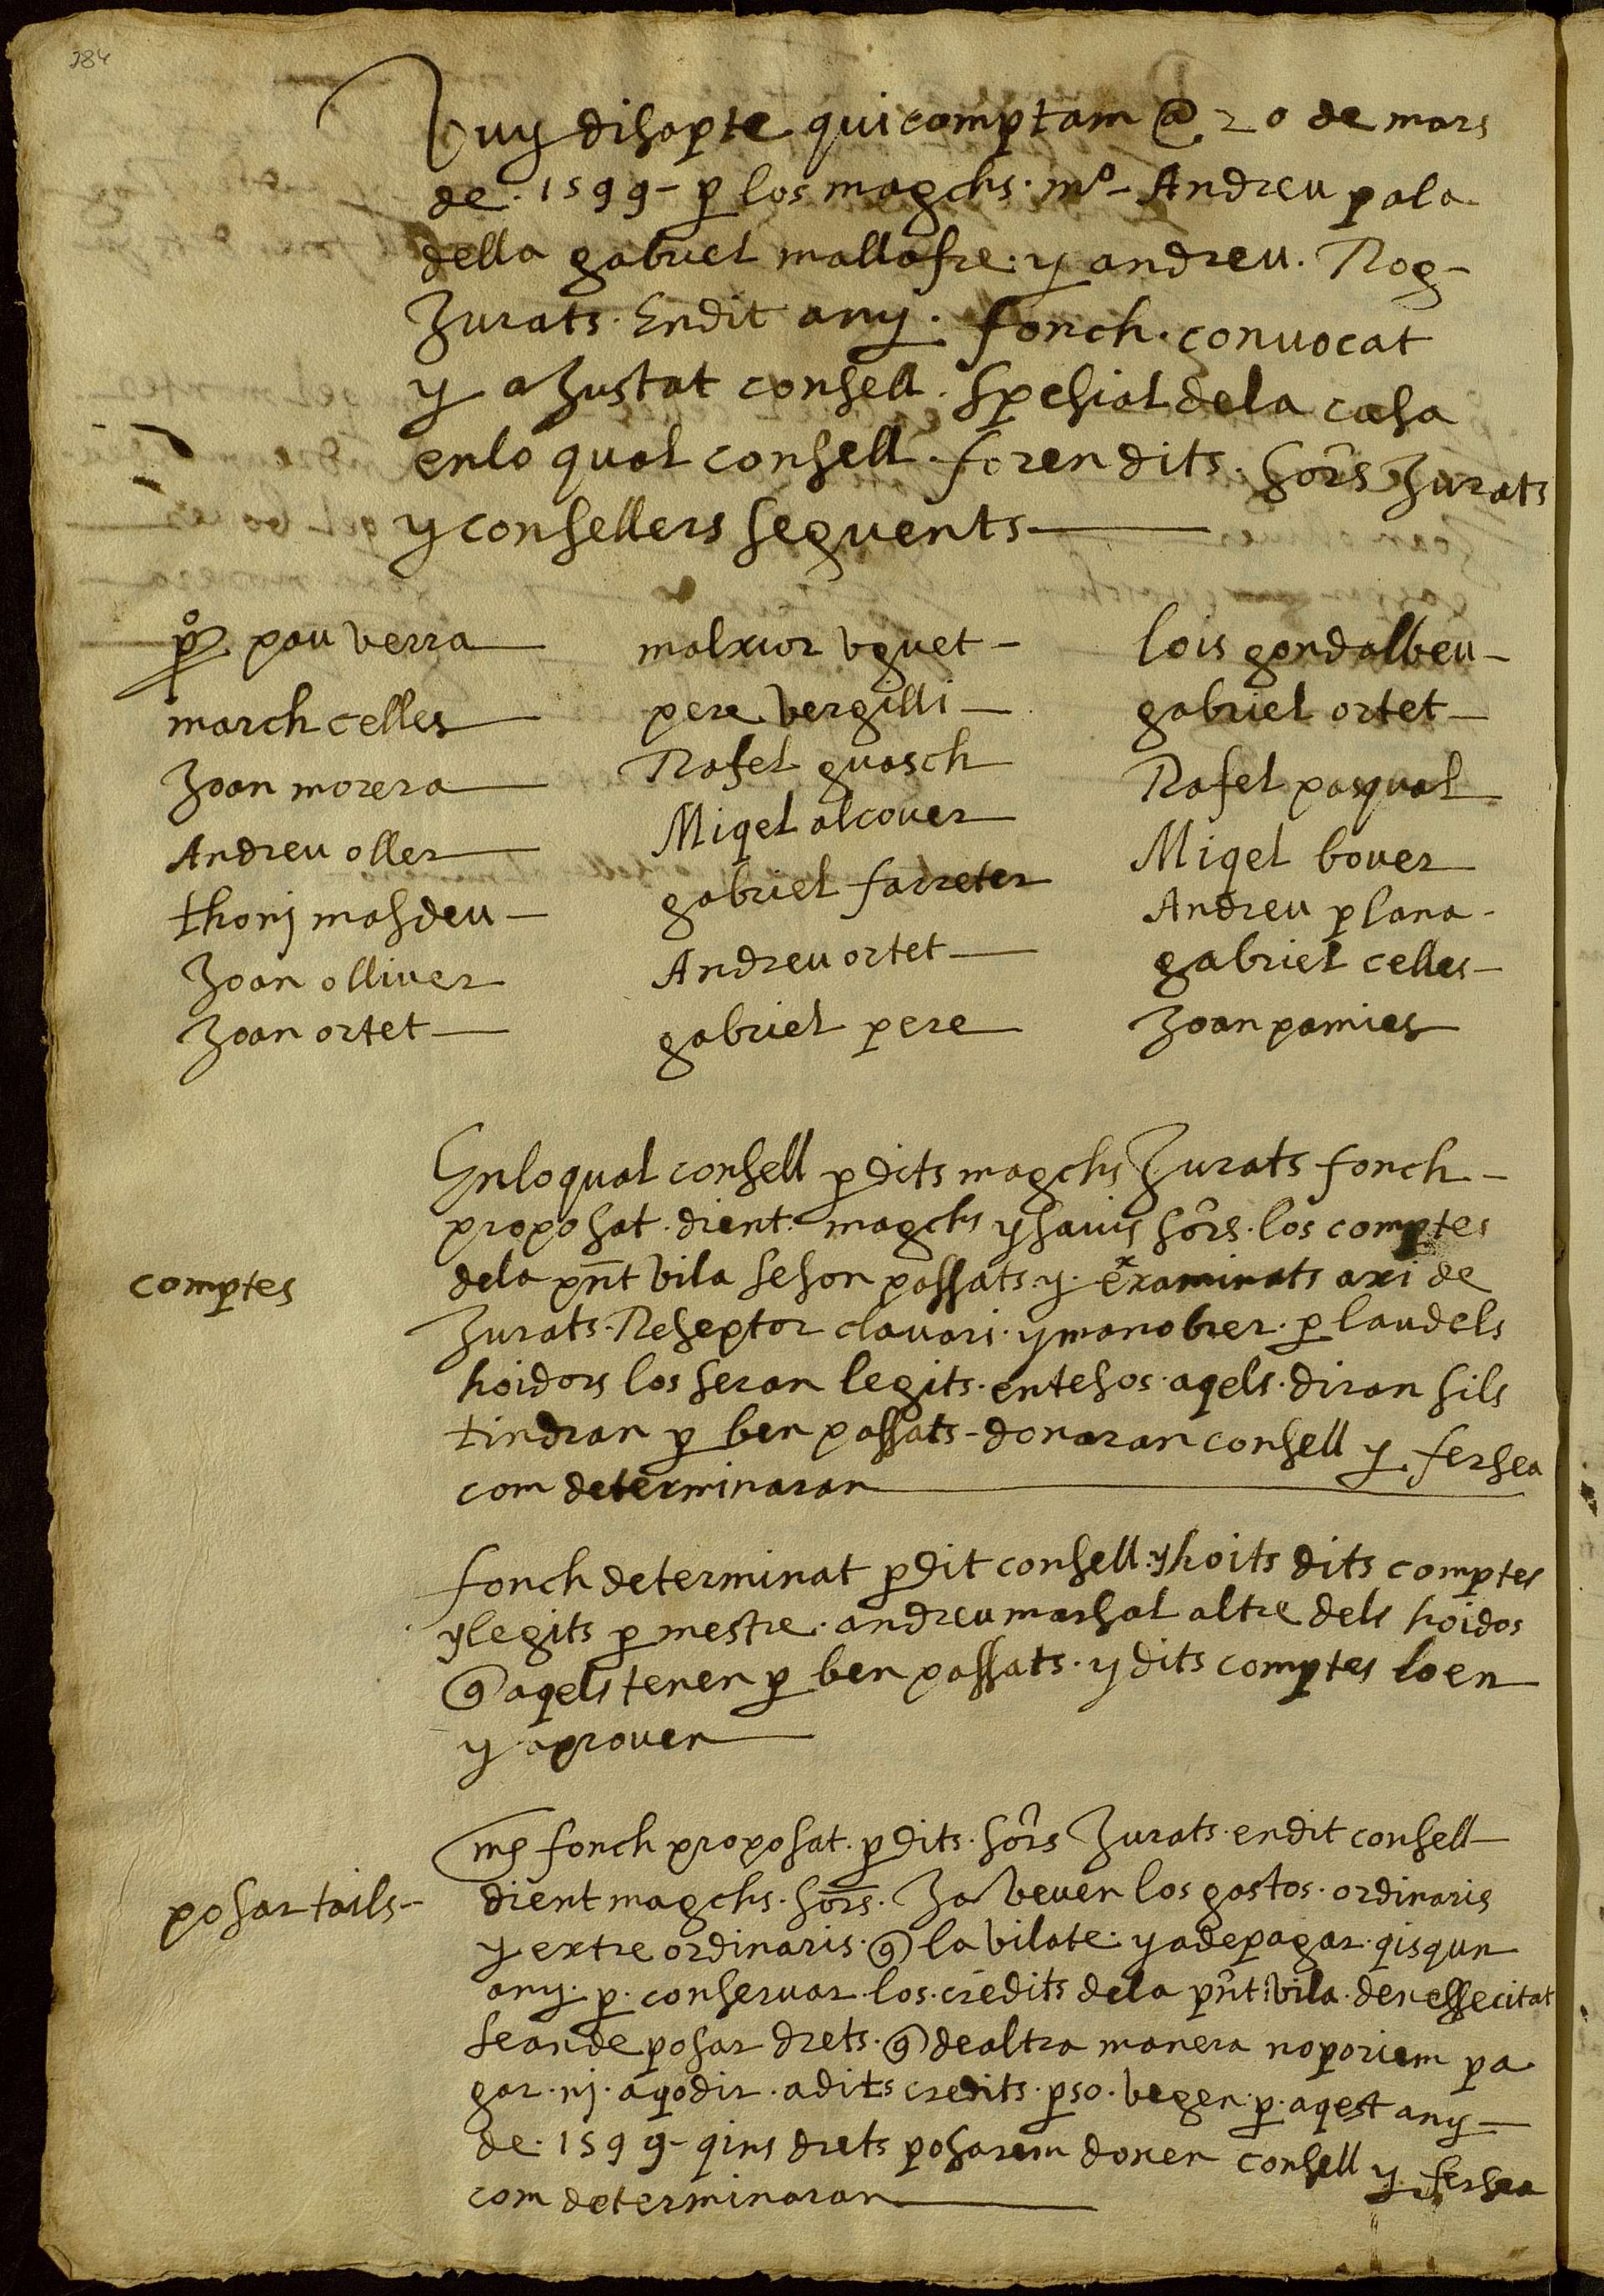 284
Vuy disapte qui comptam @ 20 de mars
de 1599 - p los magchs. mº Andreu pala
della gabriel mallafre. y andreu. Rog-
Jurats. En dit any. fonch. convocat
y aJustat consell. spesial de la casa
en lo qual consell. foren dits. sors Jurats
y consellers seguents
pº pau verra
march celles
Joan morera
Andreu oller
thonj masdeu -
Joan olliver
Joan ortet
malxior vguet -
pere vergilli -
Rafel guasch
Miqel alcover
gabriel farreter
Andreu ortet
gabriel pere
lois gondalbeu -
gabriel ortet -
Rafel pasqual
Miqel bover
Andreu plana -
gabriel celles -
Joan pamies
En lo qual consell p dits magchs Jurats fonch -
proposat. dient. magchs y savis sors. los comptes
comptes
de la pnt vila se son passats. y. examinats axi de
Jurats. Reseptor clavari. y manobrer. p la u dels
hoidors los seran legits. entesos. aqels. diran sils
tindran p ben passats - donaran consell y fersea
com determinaran
fonch determinat p dit consell. y hoits dits comptes
y legits p mestre. andreu marsal altre dels hoidos
q aqels tenen p ben passats. y dits comptes loen
y aproven
ms fonch proposat. p dits. sors Jurats. en dit consell -
posar tails -
dient magchs. sors. Ja veuen los gastos. ordinaris
y extre ordinaris. q la vila te. y a de pagar. qisqun
any. p. conservar. los. credits de la pnt vila. de nessecitat
se an de posar drets. q de altra manera no poriem pa
gar. nj. aqodir. a dits credits. p so. vegen. p. aqest any -
de. 1599 - qins drets posarem donen consell y fersea
com determinaran